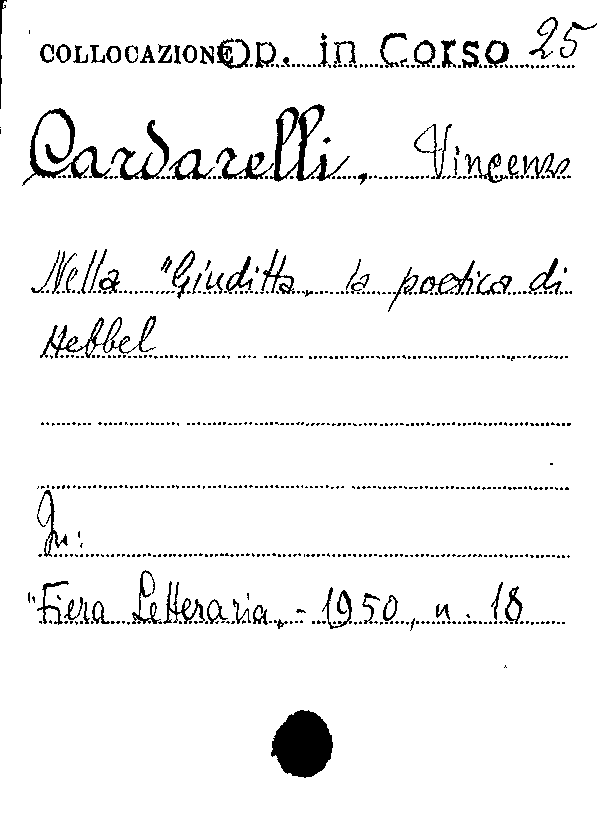 COLLOCAZIONE Op. in Corso 25
Cardarelli, Vincenzo
Nella "Giuditta„ la poetica di
Hebbel
In:
"Fiera Letteraria„ - 1950, n. 18